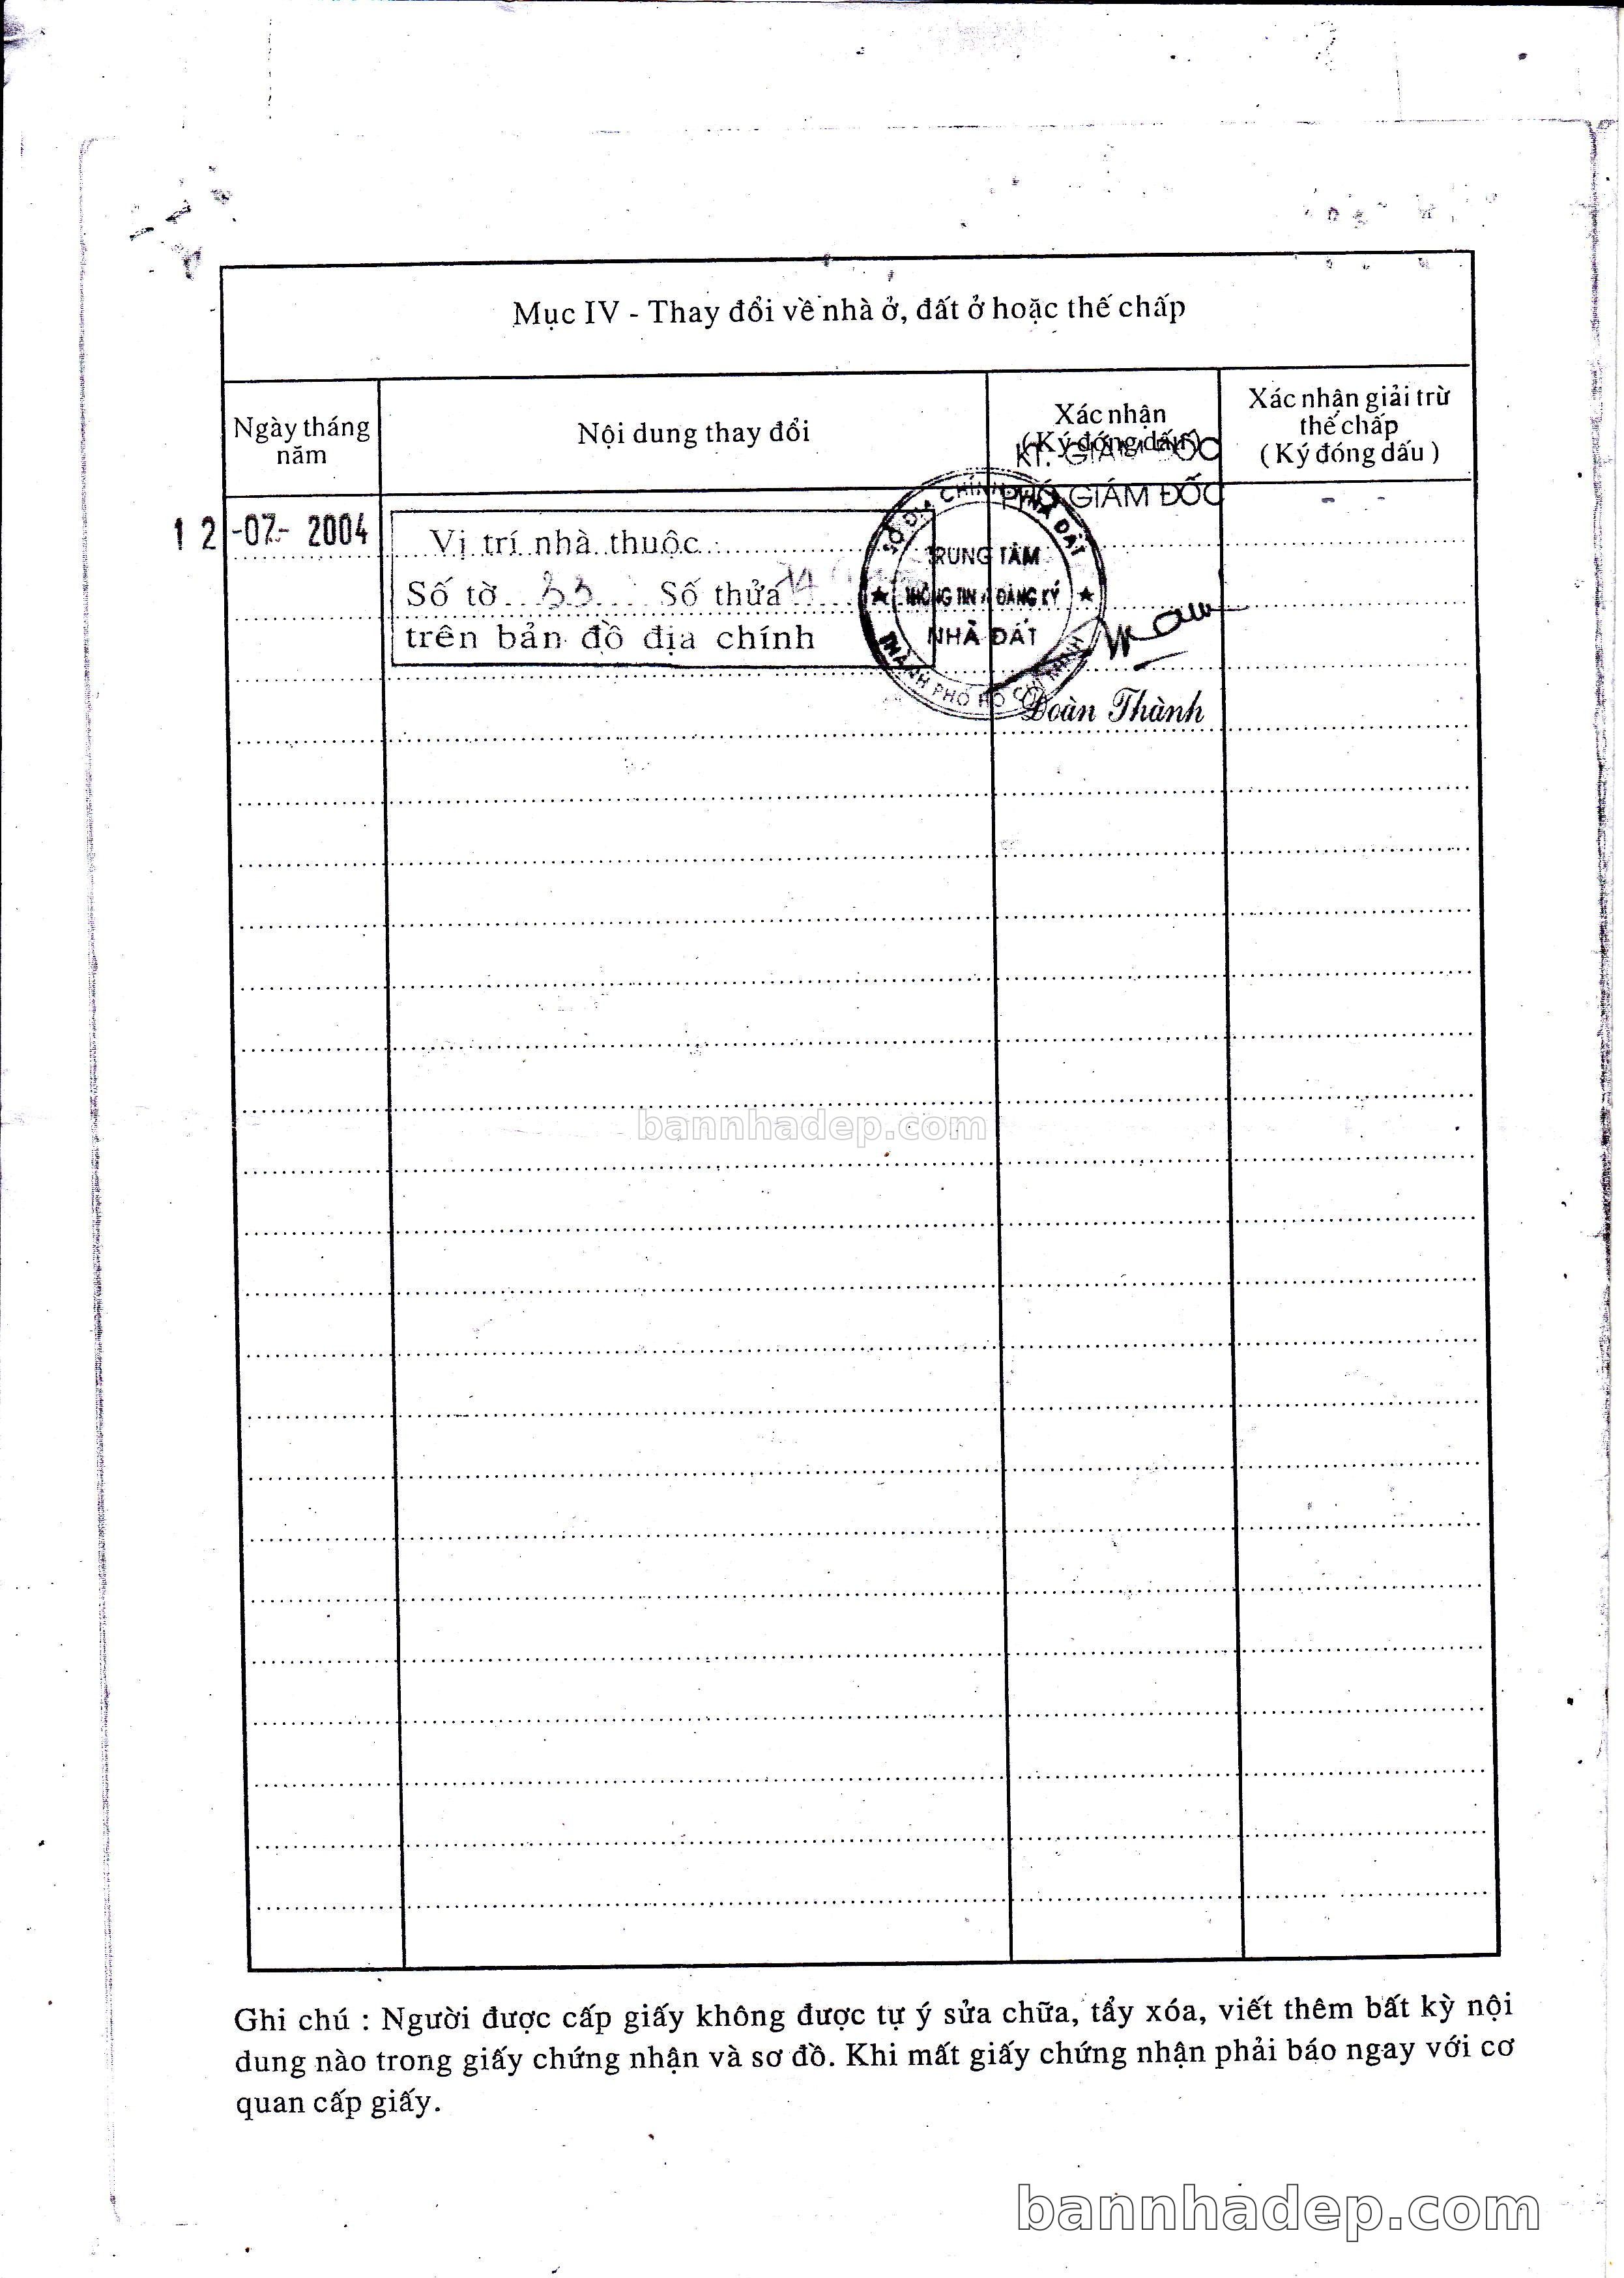 Mục IV - Thay đổi về nhà ở, đất ở hoặc thế chấp
Ngày tháng
năm
Nội dung thay đổi
Xác nhận
( Ký đóng dấu )
Xác nhận giải trừ
thế chấp
( Ký đóng dấu )
KT. GIÁM ĐỐC
PHÓ GIÁM ĐỐC
12 -07- 2004
Vị trí nhà thuộc
Số tờ 33 Số thửa
trên bản đồ địa chính
SỞ ĐỊA CHÍNH NHÀ ĐẤT
TRUNG TÂM
THÔNG TIN ĐĂNG KÝ
NHÀ ĐẤT
THÀNH PHỐ HỒ CHÍ MINH
Đoàn Thành
bannhadep.com
Ghi chú : Người được cấp giấy không được tự ý sửa chữa, tẩy xóa, viết thêm bất kỳ nội
dung nào trong giấy chứng nhận và sơ đồ. Khi mất giấy chứng nhận phải báo ngay với cơ
quan cấp giấy.
bannhadep.com